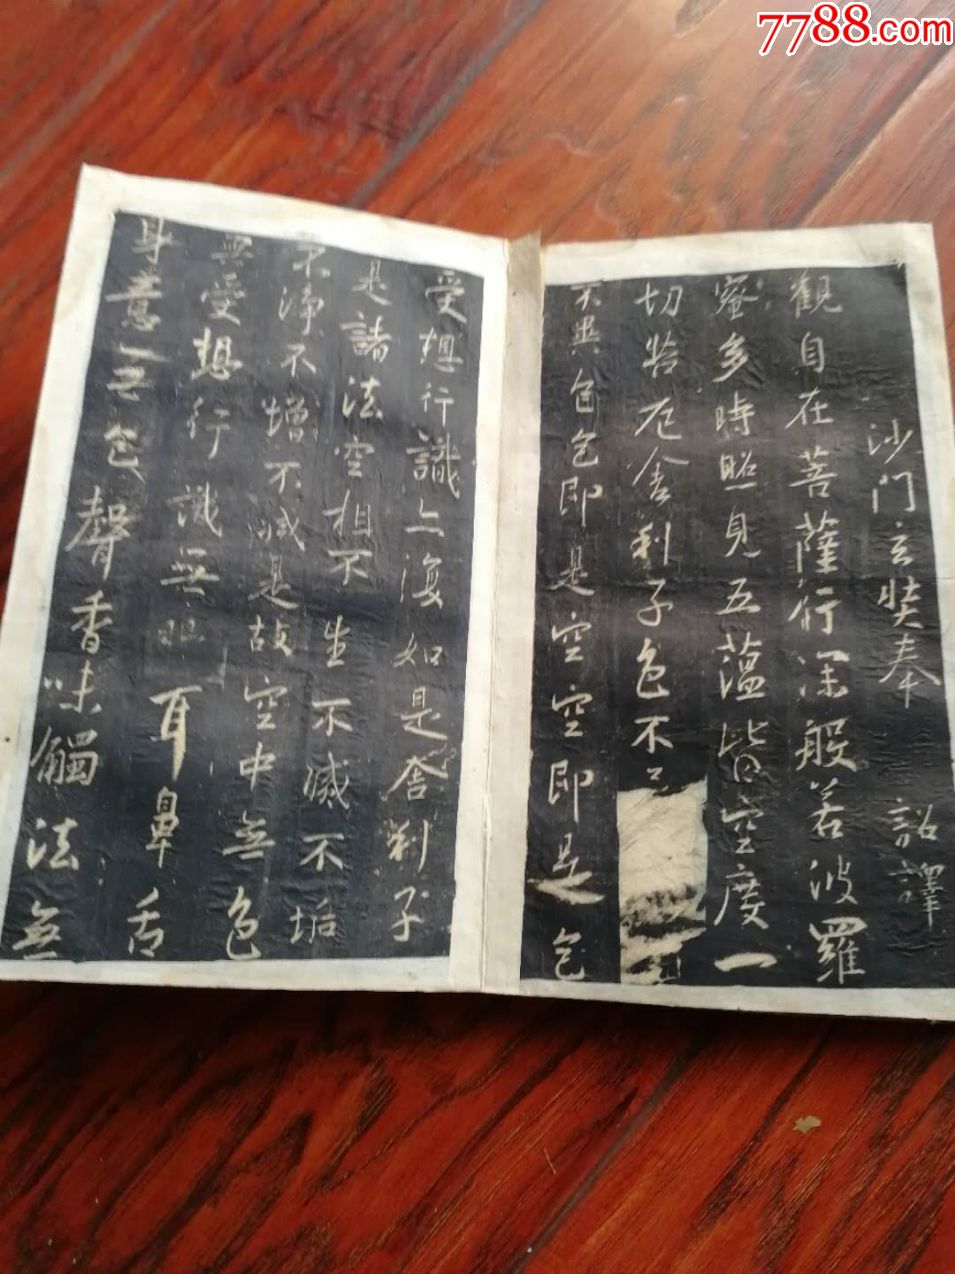 7788.com
沙門玄奘奉 詔譯
觀自在菩薩行深般若波羅
蜜多時照見五蘊皆空度一
切苦厄舍利子色不
不異色色即是空空即是色
受想行識亦復如是舍利子
是諸法空相不生不滅不垢
不淨不增不減是故空中無色
無受想行識無眼耳鼻舌
身意無色聲香味觸法無